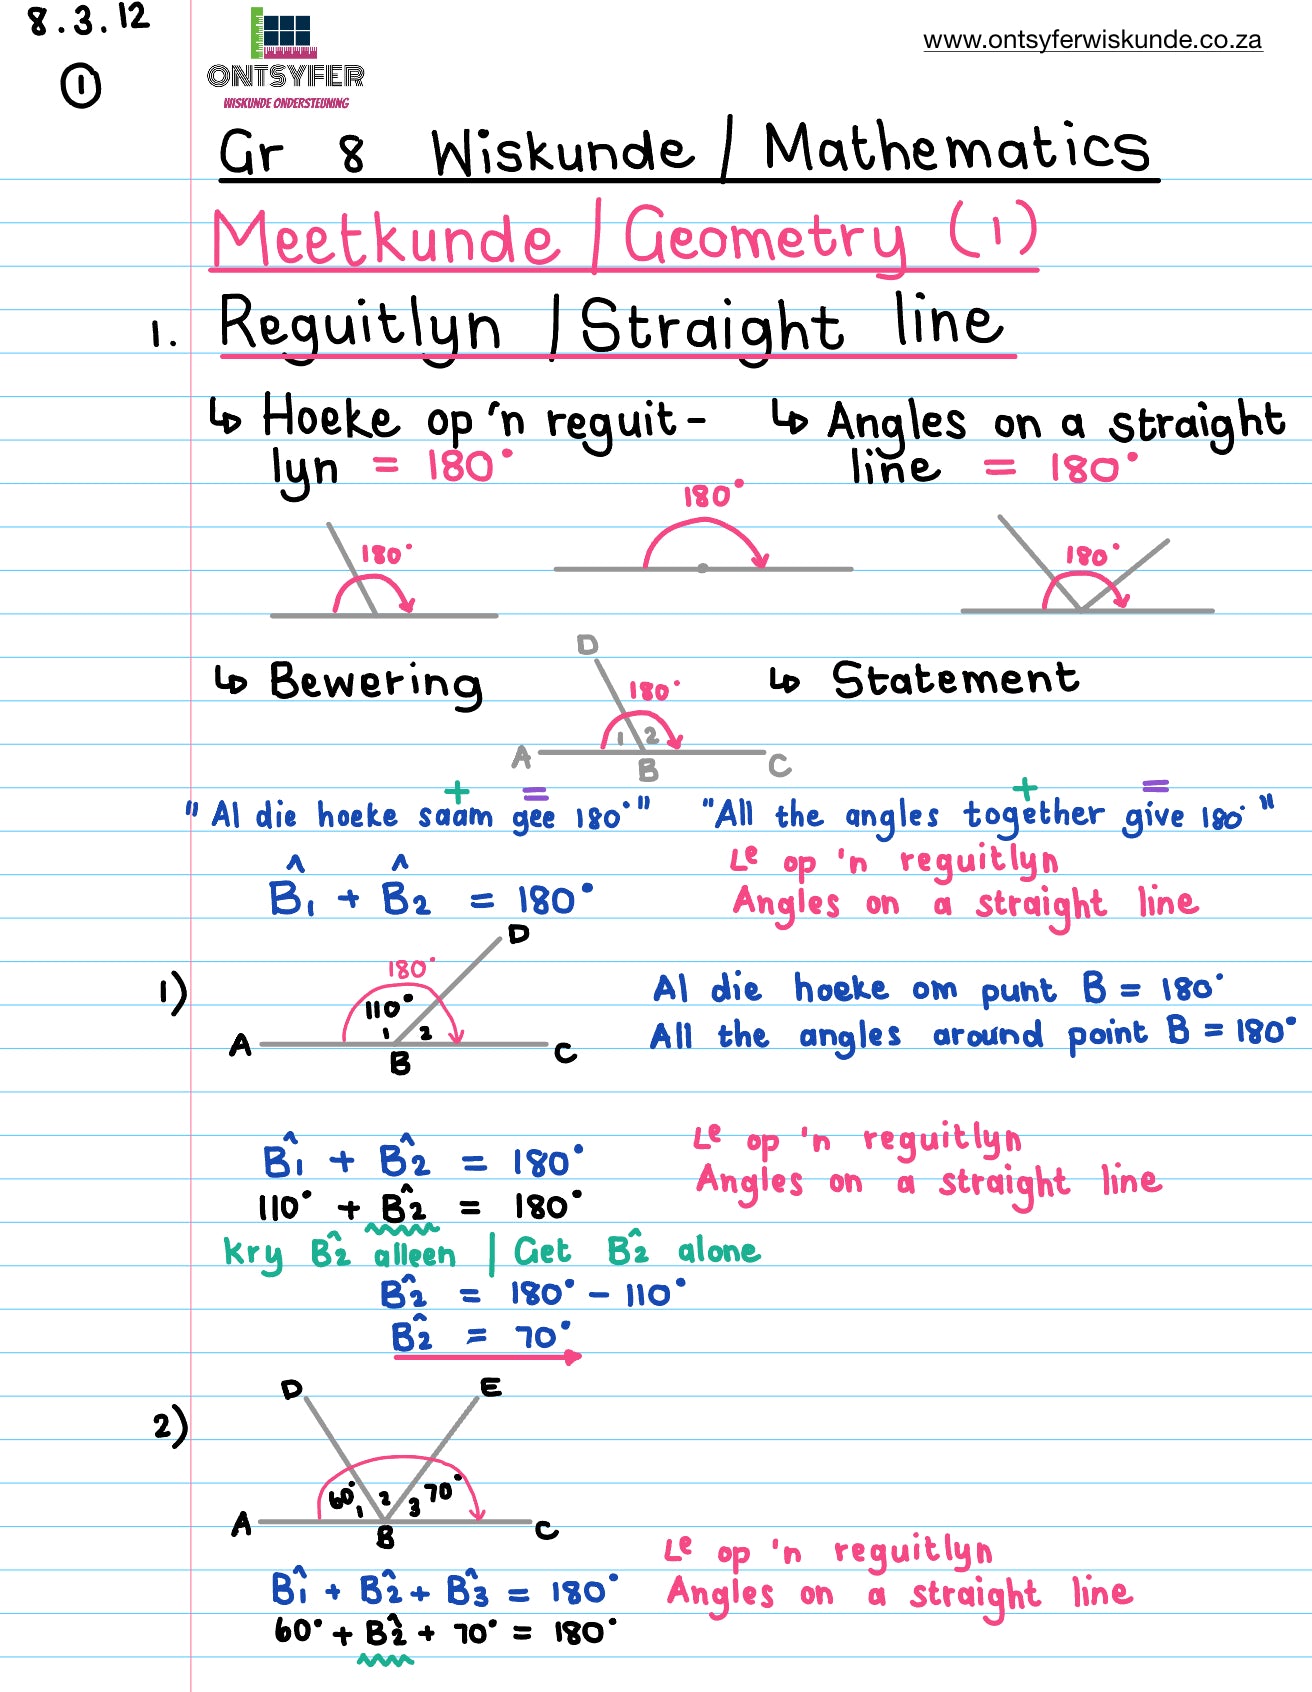 8.3.12
1
ONTSYFER
WISKUNDE ONDERSTEUNING
www.ontsyferwiskunde.co.za
Gr 8 Wiskunde / Mathematics
Meetkunde / Geometry (1)
1. Reguitlyn / Straight line
↳ Hoeke op 'n reguit-
lyn = 180°
↳ Angles on a straight
line = 180°
180°
180°
180°
↳ Bewering
↳ Statement
D
180°
1 2
A B C
+ =
"Al die hoeke saam gee 180°"
+ =
"All the angles together give 180°"
B̂1 + B̂2 = 180°
Lᵉ op 'n reguitlyn
Angles on a straight line
1)
D
180°
110°
1 2
A B C
Al die hoeke om punt B = 180°
All the angles around point B = 180°
B̂1 + B̂2 = 180°
Lᵉ op 'n reguitlyn
Angles on a straight line
110° + B̂2 = 180°
Kry B̂2 alleen | Get B̂2 alone
B̂2 = 180° - 110°
B̂2 = 70°
2)
D E
60° 1 2 3 70°
A B C
B̂1 + B̂2 + B̂3 = 180°
Lᵉ op 'n reguitlyn
Angles on a straight line
60° + B̂2 + 70° = 180°